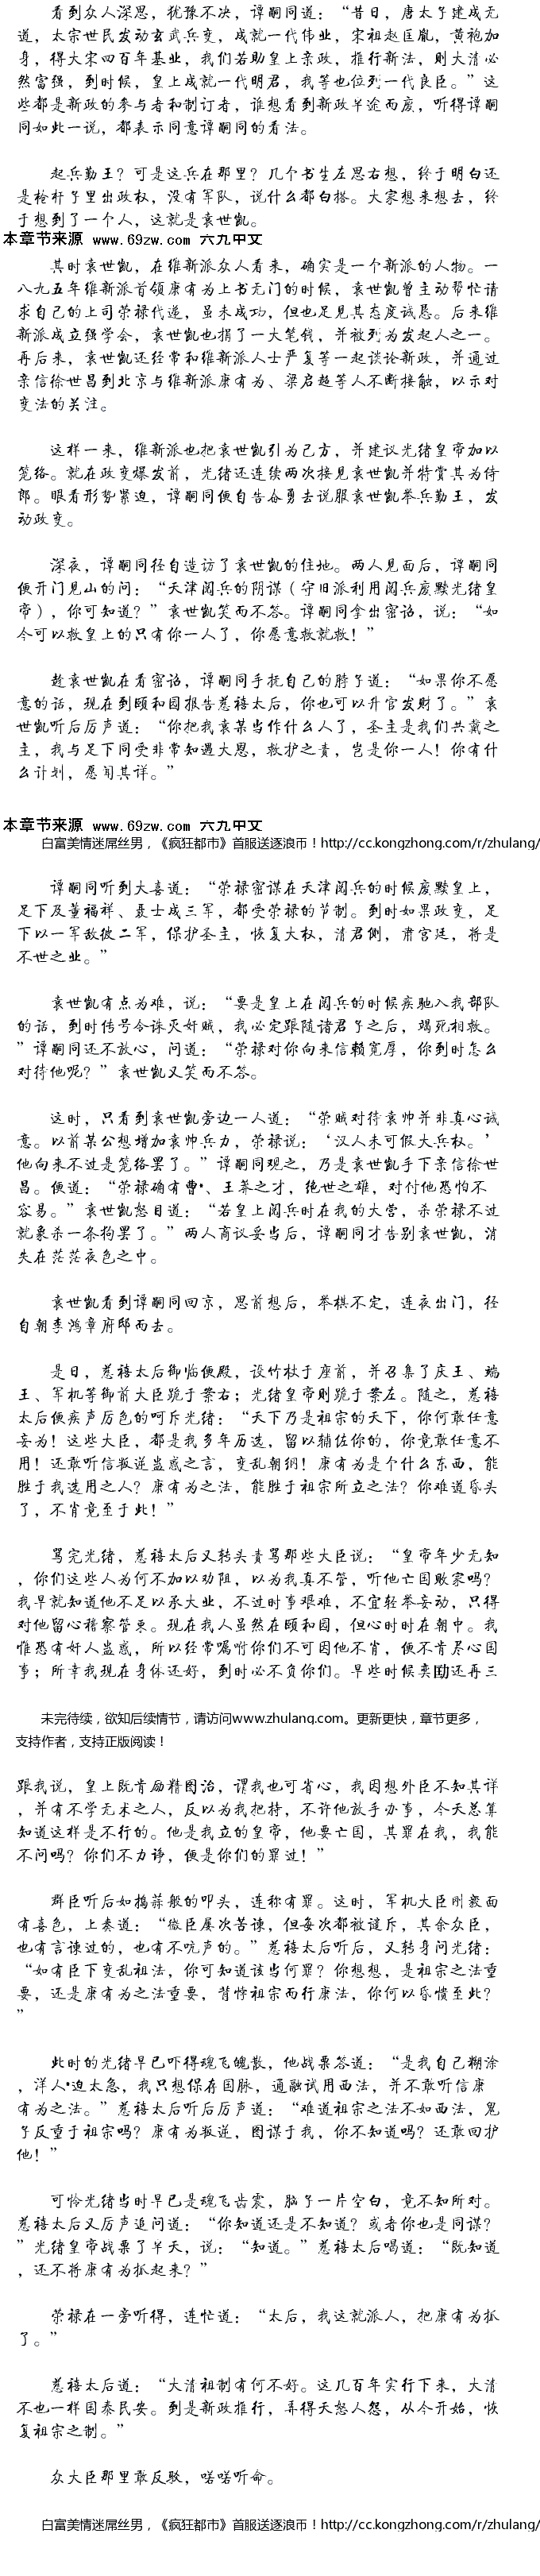 看到众人深思，犹豫不决，谭嗣同道：“昔日，唐太子建成无
道，太宗世民发动玄武兵变，成就一代伟业，宋祖赵匡胤，黄袍加
身，得大宋四百年基业，我们若助皇上亲政，推行新法，则大清必
然富强，到时候，皇上成就一代明君，我等也位列一代良臣。”这
些都是新政的参与者和制订者，谁想看到新政半途而废，听得谭嗣
同如此一说，都表示同意谭嗣同的看法。
起兵勤王？可是这兵在那里？几个书生左思右想，终于明白还
是枪杆子里出政权，没有军队，说什么都白搭。大家想来想去，终
于想到了一个人，这就是袁世凯。
本章节来源 www.69zw.com 六九中文
其时袁世凯，在维新派众人看来，确实是一个新派的人物。一
八九五年维新派首领康有为上书无门的时候，袁世凯曾主动帮忙请
求自己的上司荣禄代递，虽未成功，但也足见其态度诚恳。后来维
新派成立强学会，袁世凯也捐了一大笔钱，并被列为发起人之一。
再后来，袁世凯还经常和维新派人士严复等一起谈论新政，并通过
亲信徐世昌到北京与维新派康有为、梁启超等人不断接触，以示对
变法的关注。
这样一来，维新派也把袁世凯引为己方，并建议光绪皇帝加以
笼络。就在政变爆发前，光绪还连续两次接见袁世凯并特赏其为侍
郎。眼看形势紧迫，谭嗣同便自告奋勇去说服袁世凯举兵勤王，发
动政变。
深夜，谭嗣同径自造访了袁世凯的住地。两人见面后，谭嗣同
便开门见山的问：“天津阅兵的阴谋（守旧派利用阅兵废黜光绪皇
帝），你可知道？”袁世凯笑而不答。谭嗣同拿出密诏，说：“如
今可以救皇上的只有你一人了，你愿意救就救！”
趁袁世凯在看密诏，谭嗣同手抚自己的脖子道：“如果你不愿
意的话，现在到颐和园报告慈禧太后，你也可以升官发财了。”袁
世凯听后厉声道：“你把我袁某当作什么人了，圣主是我们共戴之
主，我与足下同受非常知遇大恩，救护之责，岂是你一人！你有什
么计划，愿闻其详。”
本章节来源 www.69zw.com 六九中文
白富美情迷屌丝男，《疯狂都市》首服送逐浪币！http://cc.kongzhong.com/r/zhulang/
谭嗣同听到大喜道：“荣禄密谋在天津阅兵的时候废黜皇上，
足下及董福祥、聂士成三军，都受荣禄的节制。到时如果政变，足
下以一军敌彼二军，保护圣主，恢复大权，清君侧，肃宫廷，将是
不世之业。”
袁世凯有点为难，说：“要是皇上在阅兵的时候疾驰入我部队
的话，到时传号令诛灭奸贼，我必定跟随诸君子之后，竭死相救。
”谭嗣同还不放心，问道：“荣禄对你向来信赖宽厚，你到时怎么
对待他呢？”袁世凯又笑而不答。
这时，只看到袁世凯旁边一人道：“荣贼对待袁帅并非真心诚
意。以前某公想增加袁帅兵力，荣禄说：‘汉人未可假大兵权。’
他向来不过是笼络罢了。”谭嗣同观之，乃是袁世凯手下亲信徐世
昌。便道：“荣禄确有曹•、王莽之才，绝世之雄，对付他恐怕不
容易。”袁世凯怒目道：“若皇上阅兵时在我的大营，杀荣禄不过
就象杀一条狗罢了。”两人商议妥当后，谭嗣同才告别袁世凯，消
失在茫茫夜色之中。
袁世凯看到谭嗣同回京，思前想后，举棋不定，连夜出门，径
自朝李鸿章府邸而去。
是日，慈禧太后御临便殿，设竹杖于座前，并召集了庆王、端
王、军机等御前大臣跪于案右；光绪皇帝则跪于案左。随之，慈禧
太后便疾声厉色的呵斥光绪：“天下乃是祖宗的天下，你何敢任意
妄为！这些大臣，都是我多年历选，留以辅佐你的，你竟敢任意不
用！还敢听信叛逆蛊惑之言，变乱朝纲！康有为是个什么东西，能
胜于我选用之人？康有为之法，能胜于祖宗所立之法？你难道昏头
了，不肖竟至于此！”
骂完光绪，慈禧太后又转头责骂那些大臣说：“皇帝年少无知
，你们这些人为何不加以劝阻，以为我真不管，听他亡国败家吗？
我早就知道他不足以承大业，不过时事艰难，不宜轻举妄动，只得
对他留心稽察管束。现在我人虽然在颐和园，但心时时在朝中。我
惟恐有奸人蛊惑，所以经常嘱咐你们不可因他不肖，便不肯尽心国
事；所幸我现在身体还好，到时必不负你们。早些时候奕劻还再三
未完待续，欲知后续情节，请访问www.zhulang.com。更新更快，章节更多，
支持作者，支持正版阅读！
跟我说，皇上既肯励精图治，谓我也可省心，我因想外臣不知其详
，并有不学无术之人，反以为我把持，不许他放手办事，今天总算
知道这样是不行的。他是我立的皇帝，他要亡国，其罪在我，我能
不问吗？你们不力诤，便是你们的罪过！”
群臣听后如捣蒜般的叩头，连称有罪。这时，军机大臣刚毅面
有喜色，上奏道：“微臣屡次苦谏，但每次都被谴斥，其余众臣，
也有言谏过的，也有不吭声的。”慈禧太后听后，又转身问光绪：
“如有臣下变乱祖法，你可知道该当何罪？你想想，是祖宗之法重
要，还是康有为之法重要，背悖祖宗而行康法，你何以昏愦至此？
”
此时的光绪早已吓得魂飞魄散，他战栗答道：“是我自己糊涂
，洋人•迫太急，我只想保存国脉，通融试用西法，并不敢听信康
有为之法。”慈禧太后听后厉声道：“难道祖宗之法不如西法，鬼
子反重于祖宗吗？康有为叛逆，图谋于我，你不知道吗？还敢回护
他！”
可怜光绪当时早已是魂飞齿震，脑子一片空白，竟不知所对。
慈禧太后又厉声追问道：“你知道还是不知道？或者你也是同谋？
”光绪皇帝战栗了半天，说：“知道。”慈禧太后喝道：“既知道
，还不将康有为抓起来？”
荣禄在一旁听得，连忙道：“太后，我这就派人，把康有为抓
了。”
慈禧太后道：“大清祖制有何不好。这几百年实行下来，大清
不也一样国泰民安。到是新政推行，弄得天怒人怨，从今开始，恢
复祖宗之制。”
众大臣那里敢反驳，喏喏听命。
白富美情迷屌丝男，《疯狂都市》首服送逐浪币！http://cc.kongzhong.com/r/zhulang/